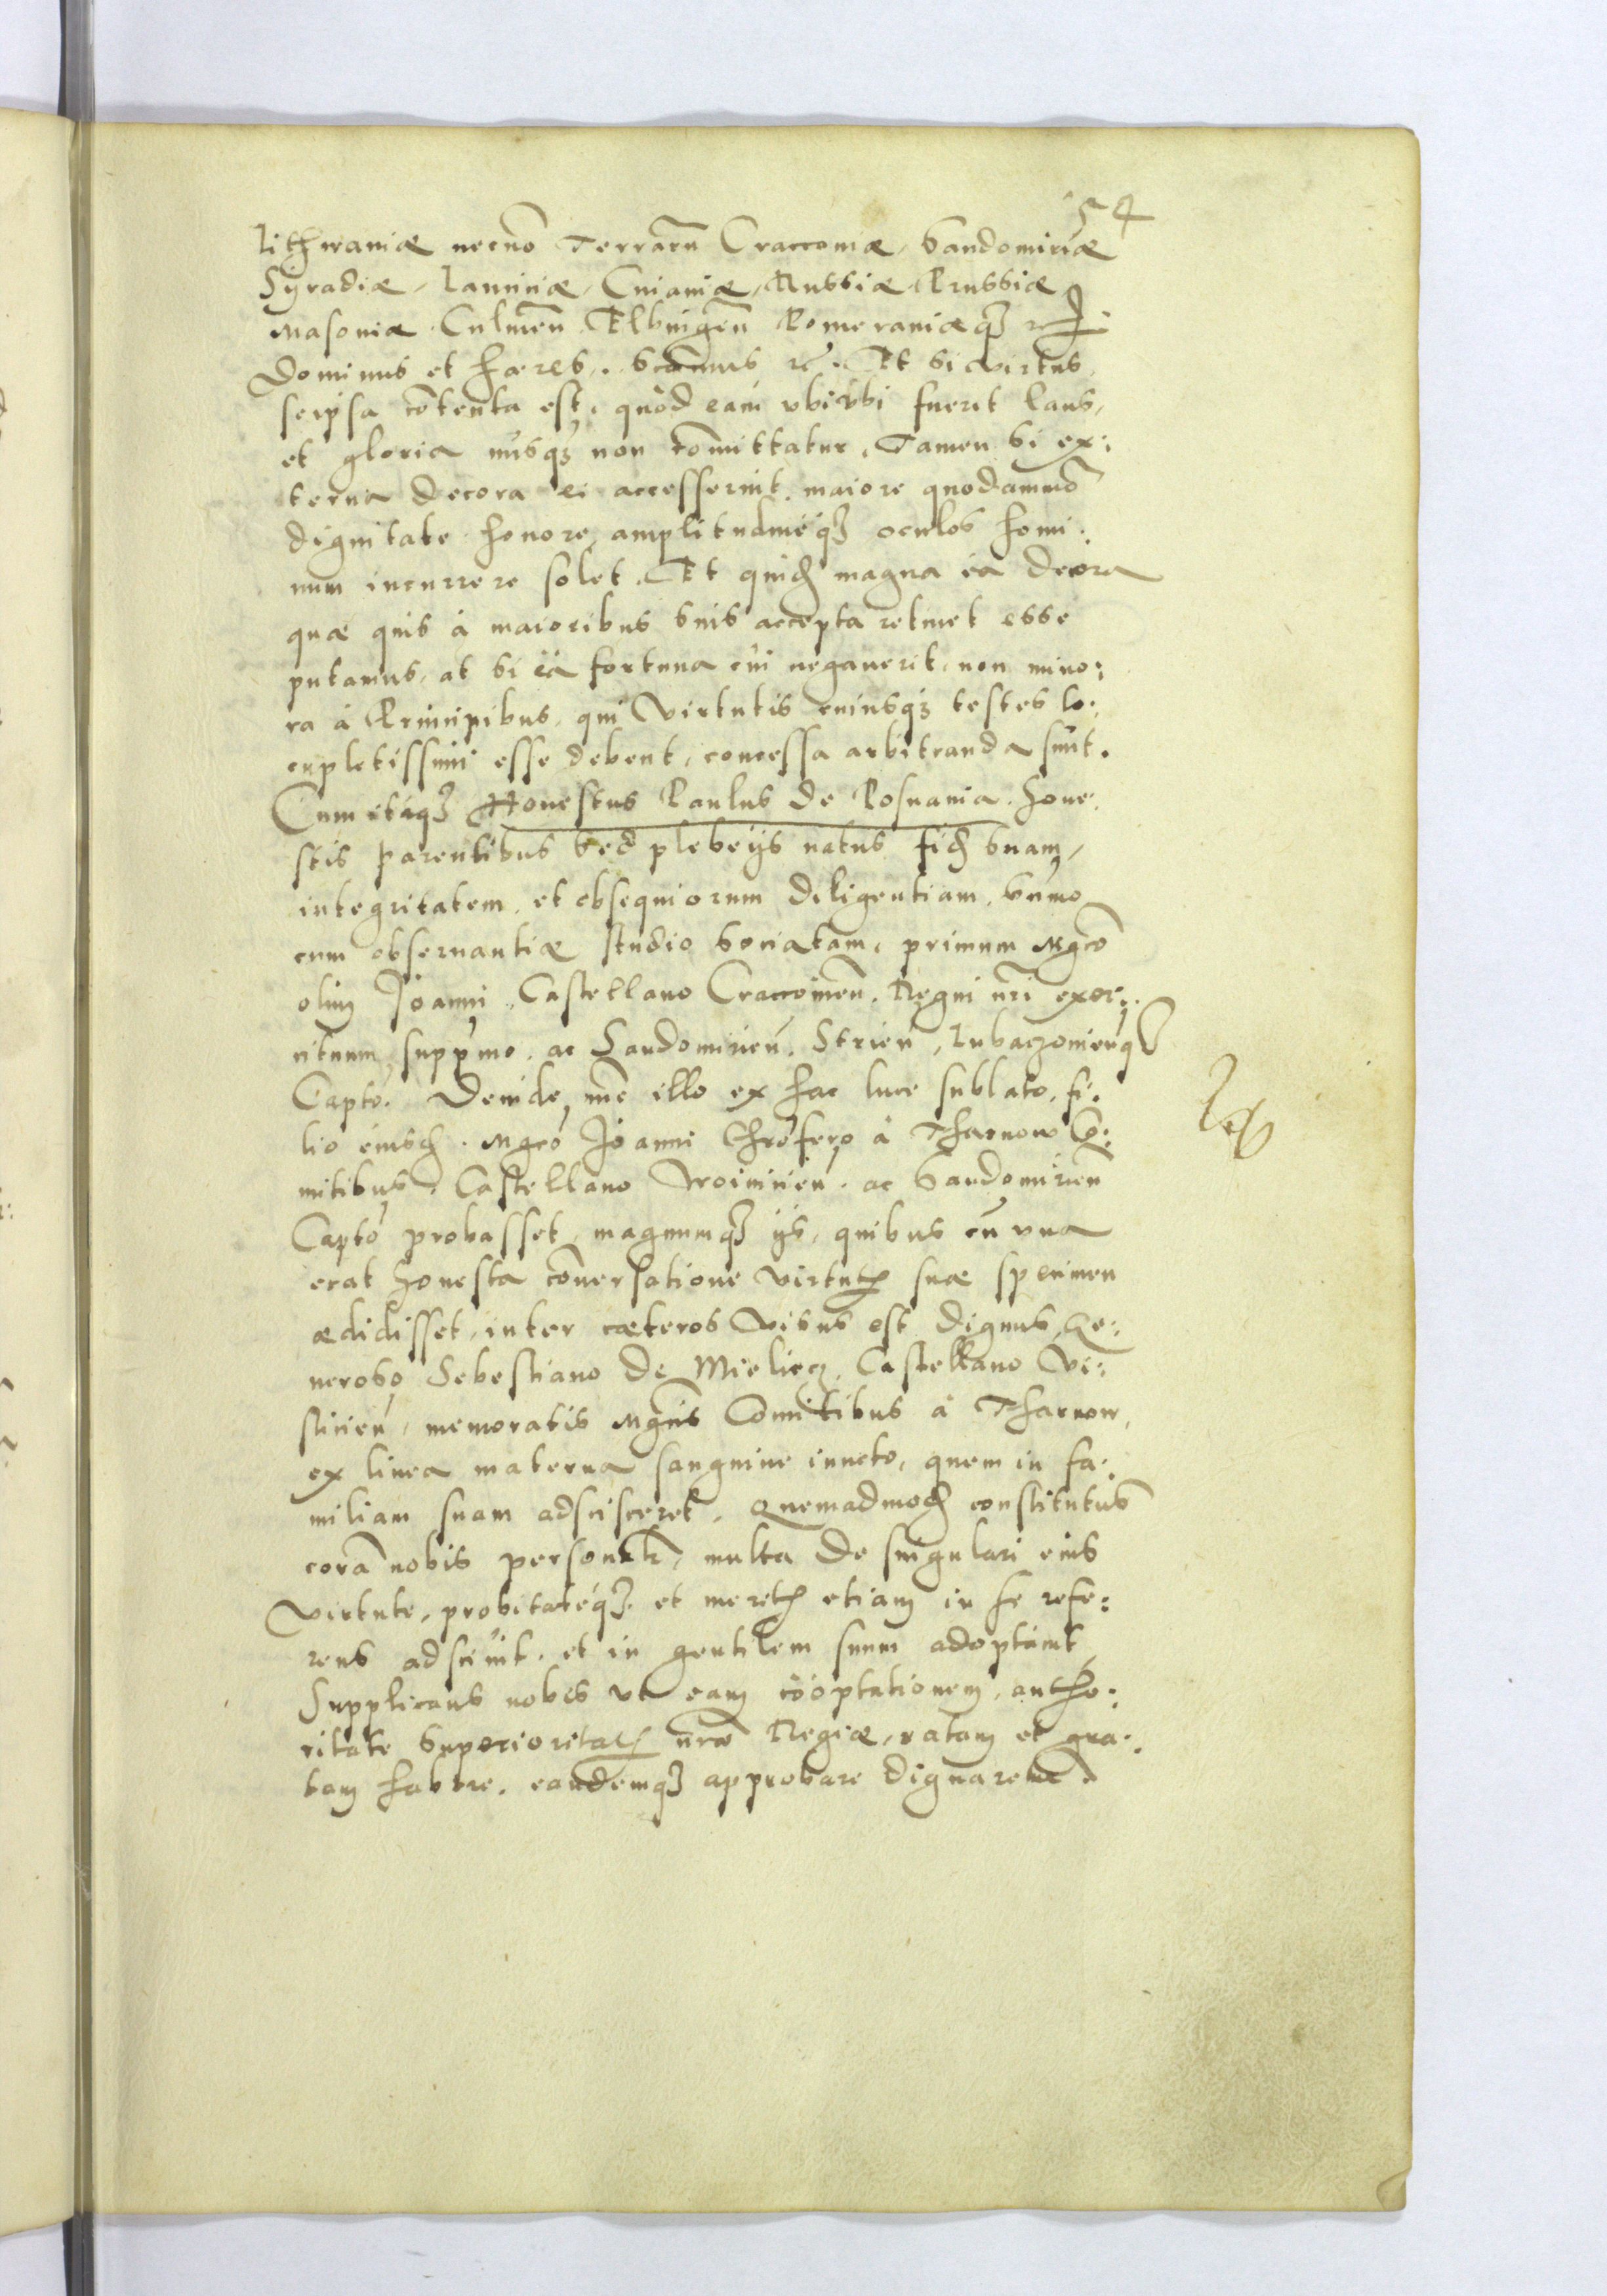 54
Lithwaniæ necnō Terrarū Craccoviæ, Sandomiriæ
Syradiæ, Lanciciæ, Cuiaviæ, Russiæ, Prussiæ
Masoviæ Culmēn Elbingēn Pomeraniæq3
Dominus et hæres. Et si virtus,
seipsa cōtenta est, quòd eam ubiubi fuerit laus,
et gloria nusq3 non comittatur, Tamen si ex:
terna decora ei accesserint, maiore quodammō
dignitate honore, amplitudineq3 oculos homi:
num incurrere solet. Et quid magna ea decora
quæ quis à maioribus suis accepta retinet esse
putamus, at si ea fortuna cui negaverit, non mino:
ra à Principibus, qui Virtutis cuiusq3 testes lo:
cupletissimi esse debent, concessa arbitranda sunt.
Cum itaq3 Honestus Paulus de Posnania hone:
stis parentibus sed plebeijs natus fid suam,
integritatem, et obsequiorum diligentiam, summo
cum observantiæ studio sociatam, primum Mgcō
olim Joanni Castellano Craccovien. Regni nri exer:
cituum supremo, ac Sandomirien. Strien, Lubaczovienq3
Captō. Deinde illo ex hac luce sublato, fi:
lio eiusd. Mgcō Joanni Chrofero à Tharnow Co:
mitibus, Castellano Woinicien. ac Sandomirien
Captō probasset, magnumq3 ijs, quibus cū una
erat honesta cōversatione virtut suæ specimen
ædidisset, inter cæteros visus est dignus, Ge:
neroso Sebestiano de Mieliecz, Castellano Vi:
slicien, memoratis Mgcis Comitibus à Tharnow,
ex linea materna sanguine iuncto, quem in fa:
miliam suam adscisceret. Quemadmod constitutus
corā nobis personalr, multa de singulari eius
virtute, probitateq3 et merit etiam in se refe:
rens adscivit, et in gentilem suum adoptavit,
Supplicans nobis ut eam cooptationem, autho:
ritate Superioritat nræ Regiæ, ratam et gra:
tam habere, eandemq3 approbare dignaremr.